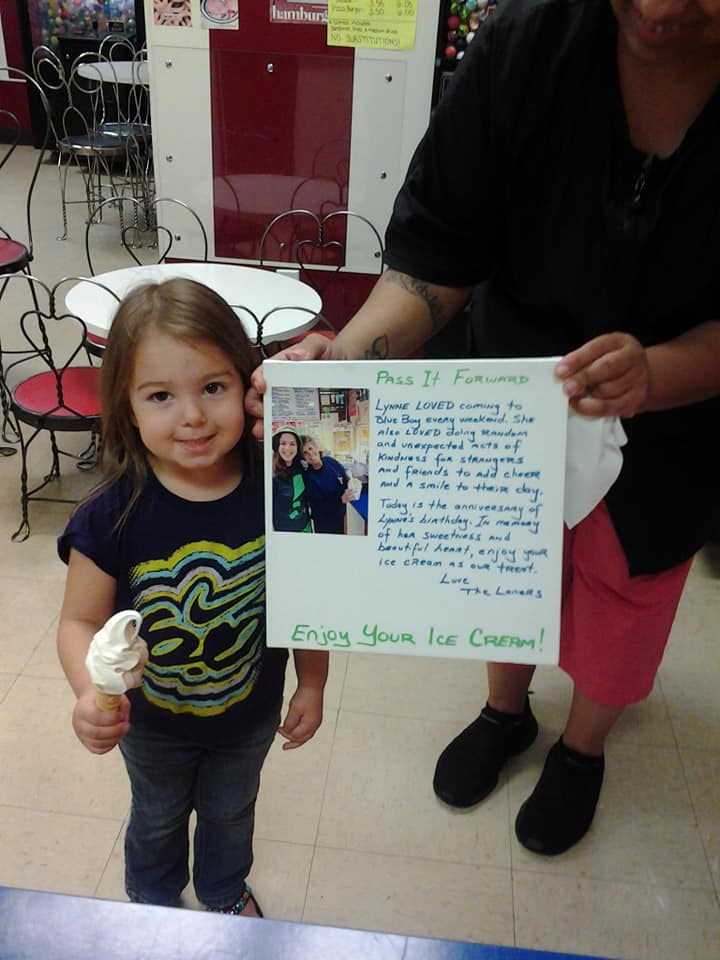 hamburg
Pizza Burger 3.50 6.00
NO SUBSTITUTIONS!
PASS IT FORWARD
LYNNE LOVED coming to
Blue Boy every weekend. She
also LOVED doing random
and unexpected acts of
kindness for strangers
and friends to add cheer
and a smile to their day.
Today is the anniversary of
Lynne's birthday. In memory
of her sweetness and
beautiful heart, enjoy your
ice cream as our treat.
Love
The
Enjoy Your Ice Cream!